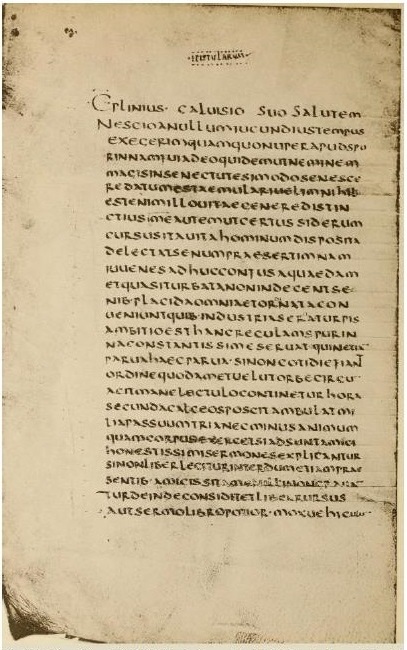 ·EPISTULARUM·
C·PLINIUS· CALUISIO SUO SALUTEM
NESCIOANULLUMIUCUNDIUSTEMPUS
EXEGERIMQUAMQUONUPERAPUDSPU
RINNAMFUIADEOQUIDEMUTNEMINEM
MAGISINSENECTUTESIMODOSENESCE
REDATUMESTAEMULARIUELIMNIHIL
ESTENIMILLOUITAEGENEREDISTIN
CTIUSMEAUTEMUTCERTUSSIDERUM
CURSUSITAUITAHOMINUMDISPOSITA
DELECTATSENUMPRAESERTIMNAM
IUUENESADHUCCONFUSAQUAEDAM
ETQUASITURBATANONINDECENTSE
NIB·PLACIDAOMNIAETORNATACON
UENIUNTQUIB·INDUSTRIASERATURPIS
AMBITIOESTHANCREGULAMSPURIN
NACONSTANTISSIMESERUAT·QUINETIA
PARUAHAECPARUA·SINONCOTIDIEFIANT
ORDINEQUODAMETUELUTORBECIRCU
AGITMANELECTULOCONTINETURHORA
SECUNDACALCEOSPOSCITAMBULATMI
LIAPASSUUMTRIANECMINUSANIMUM
QUAMCORPUSEXERCETSIADSUNTAMICI
HONESTISSIMISERMONESEXPLICANTUR
SINONLIBERLEGITURINTERDUMETIAMPRAE
SENTIB·AMICISSITAMENILLINONGRAUAN
TURDEINDECONSIDITETLIBERRURSUS
AUTSERMOLIBROPOTIOR·MOXUEHICU